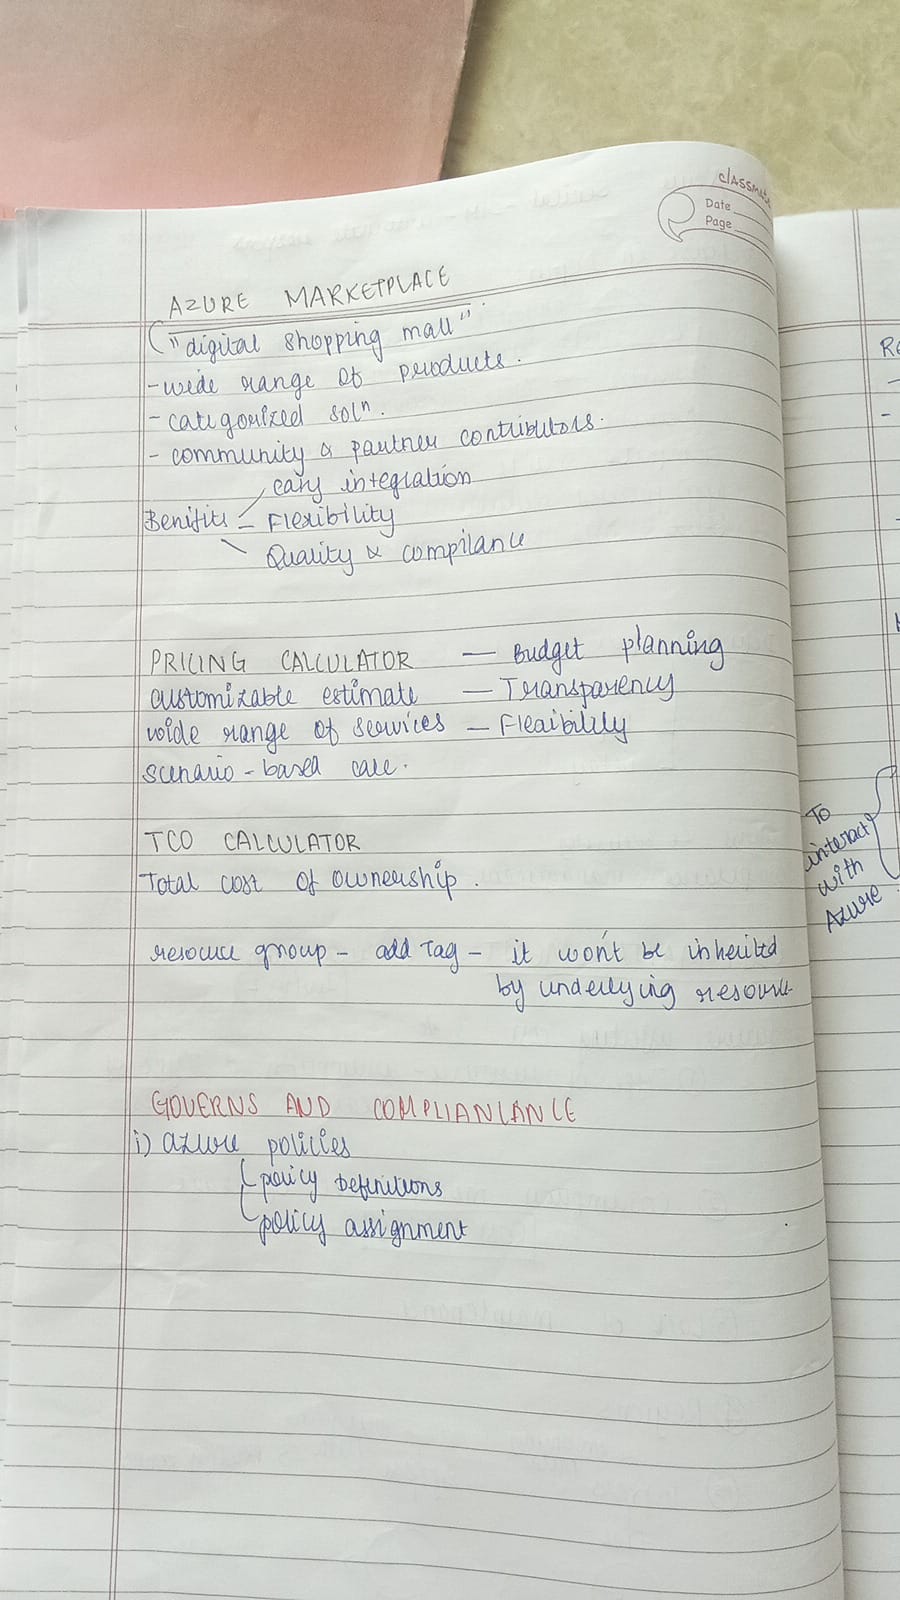 classm
Date
Page
AZURE MARKETPLACE
("digital shopping mall".
- wide range of products.
- categorized solⁿ.
- community & partner contributors.
easy integration
Benifits - Flexibility
Quality & compilance
PRICING CALCULATOR — Budget planning
customizable estimate — Transparency
wide range of services — Flexibility
scenario - based calc.
TCO CALCULATOR
Total cost of ownership.
resource group - add Tag - it won't be inherited
by underlying resource
GOVERNS AND COMPLIANIANCE
i) azure policies
policy Definitions
policy assignment
To
interact
with
Azure